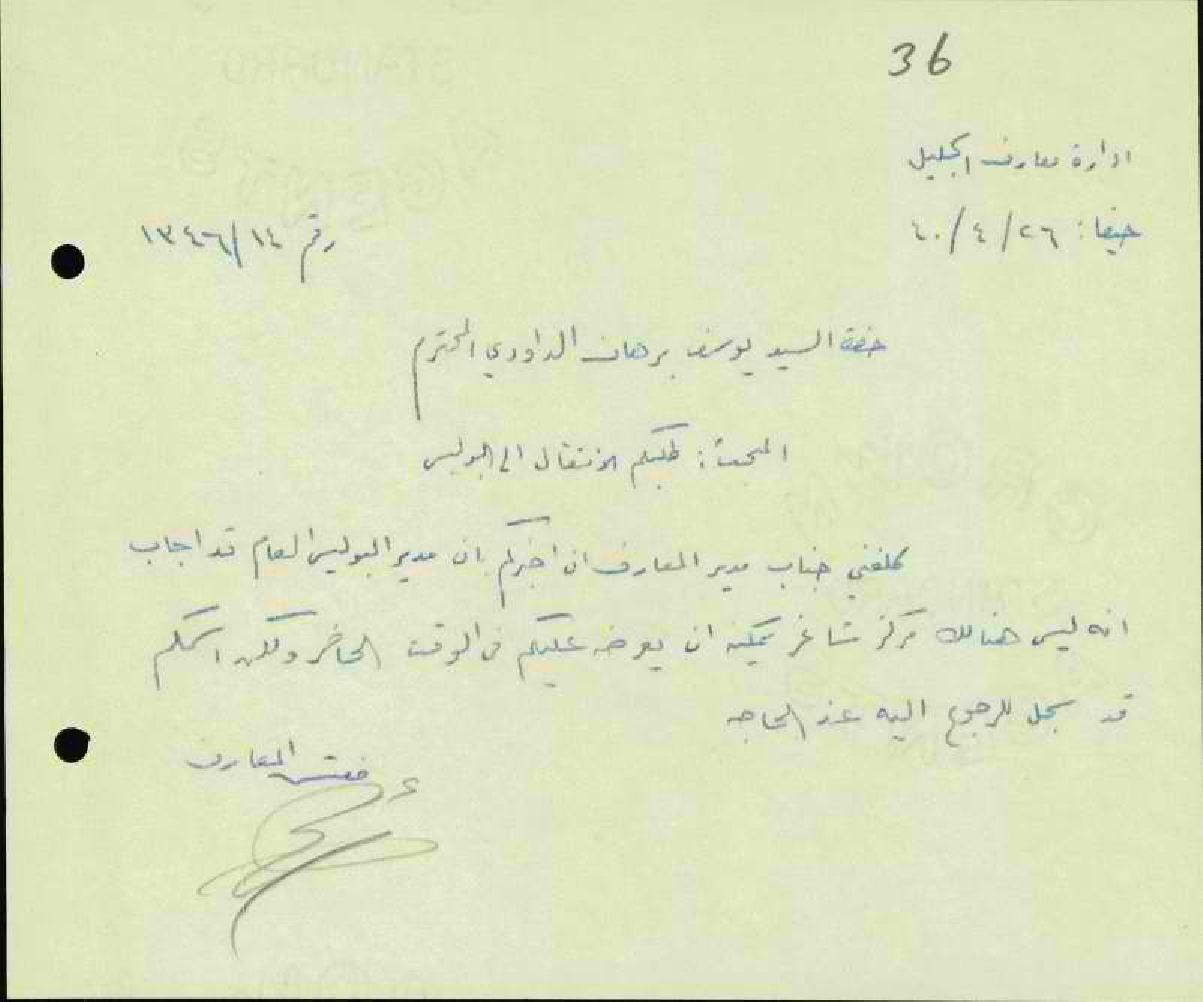 36
ادارة معارف الجليل
حيفا: ٢٦/٤/٤٠
رقم ١٣٤٦/١٤
حضرة السيد يوسف برهان الداودي المحترم
المبحث: طلبكم الانتقال الى البوليس
كلفني جناب مدير المعارف ان اخبركم بان مدير البوليس العام قد اجاب
انه ليس هنالك مركز شاغر يمكنه ان يعرضه عليكم في الوقت الحاضر ولكن اسمكم
قد سجل للرجوع اليه عند الحاجه
مفتش المعارف